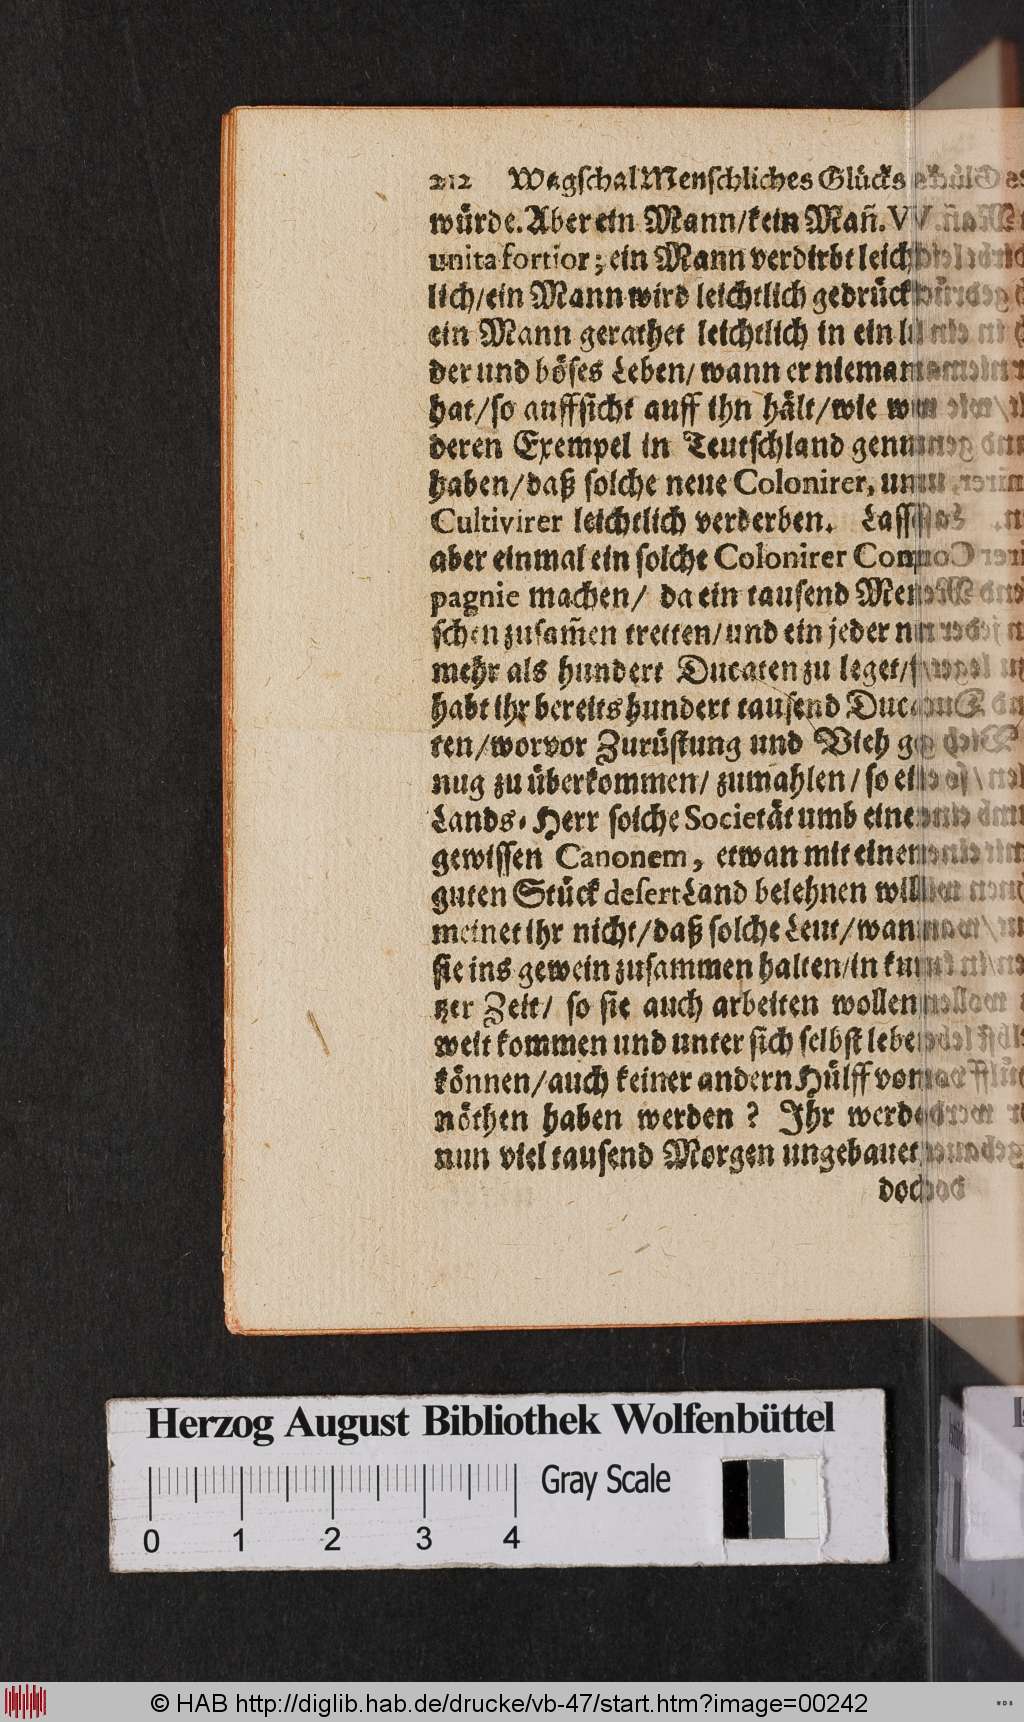 212 Wagschal Menschliches Glücks
würde. Aber ein Mann/kein Mañ. VV
unita fortior; ein Mann verdirbt leich
lich/ein Mann wird leichtlich gedrück
ein Mann gerathet leichtlich in ein
der und böses Leben/ wann er nieman
hat/so auffsicht auff ihn hält/wie
deren Exempel in Teutschland genu
haben/daß solche neue Colonirer, un
Cultivirer leichtlich verderben. Lasss
aber einmal ein solche Colonirer Com
pagnie machen/ da ein tausend Men
schen zusam̃en tretten/und ein jeder
mehr als hundert Ducaten zu leget/
habt ihr bereits hundert tausend Duca
ten/worvor Zurüstung und Vieh ge
nug zu überkommen/ zumahlen/ so ein
Lands-Herr solche Societät umb einen
gewissen Canonem, etwan mit einem
guten Stück desert Land belehnen will
meinet ihr nicht/daß solche Leut/wan
sie ins gewein zusammen halten/in kur
tzer Zeit/ so sie auch arbeiten wollen
weit kommen und unter sich selbst leben
können/auch keiner andern Hülff von
nöthen haben werden ? Ihr werdet
nun viel tausend Morgen ungebauet
doch
Herzog August Bibliothek Wolfenbüttel
0 1 2 3 4 Gray Scale
© HAB http://diglib.hab.de/drucke/vb-47/start.htm?image=00242